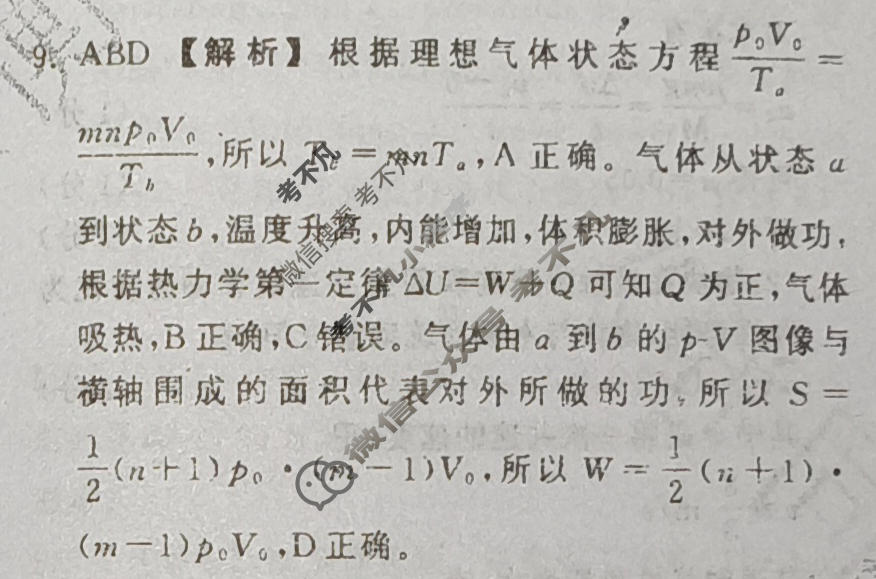 9. ABD 【解析】 根据理想气体状态方程 \frac{p_0V_0}{T_a} =
\frac{mnp_0V_0}{T_b},所以 T_b = mnT_a,A 正确。气体从状态 a
到状态 b,温度升高,内能增加,体积膨胀,对外做功,
根据热力学第一定律 ΔU=W+Q 可知 Q 为正,气体
吸热,B 正确,C 错误。气体由 a 到 b 的 p-V 图像与
横轴围成的面积代表对外所做的功,所以 S =
\frac{1}{2}(n+1)p_0·(m-1)V_0,所以 W = \frac{1}{2}(n+1)·
(m-1)p_0V_0,D 正确。
考不凡
微信搜索 考不凡
考不凡小程序
微信公众号 考不凡